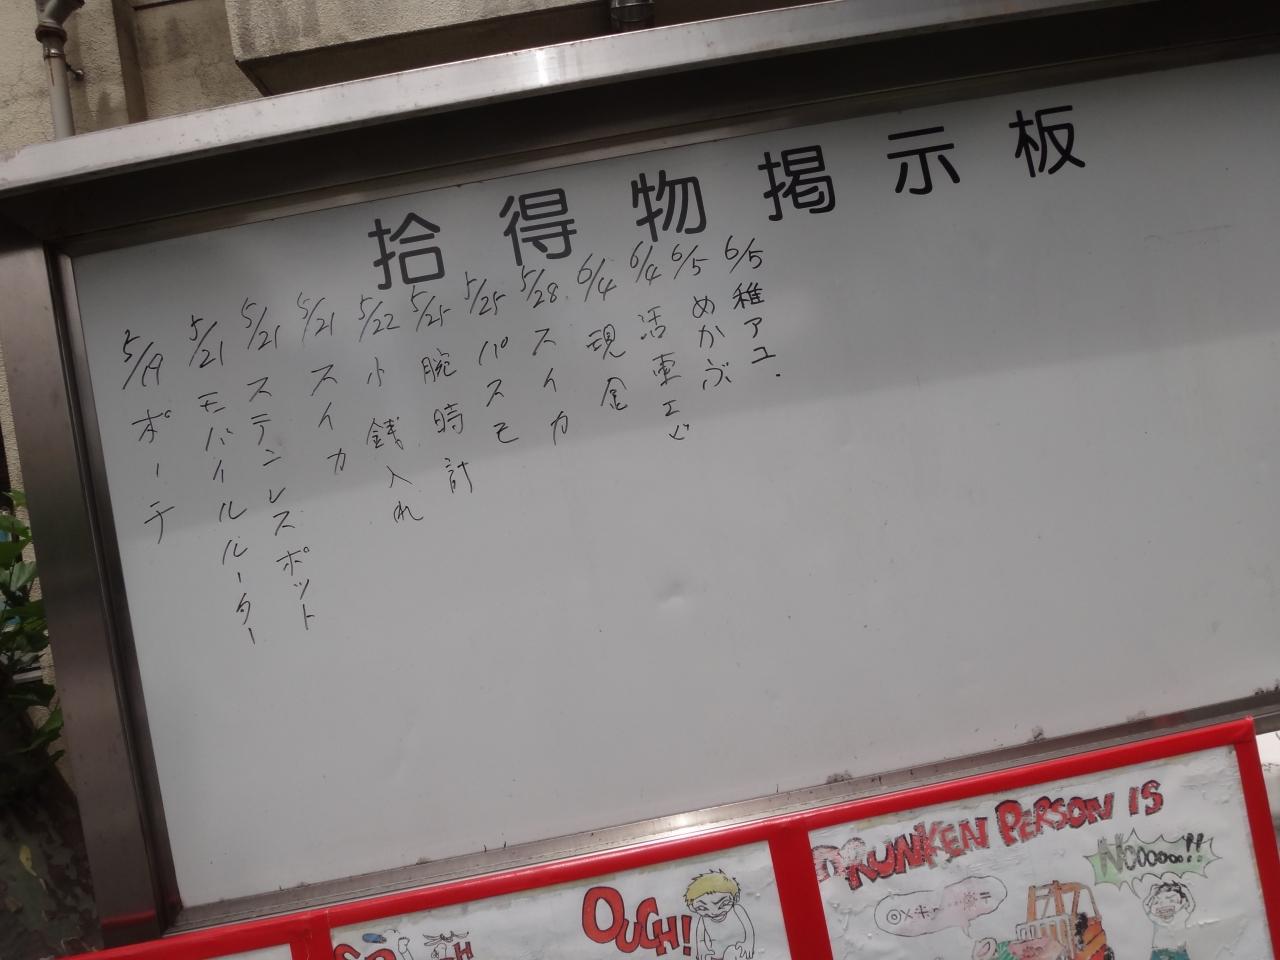 拾得物掲示板
6/5 稚アユ.
6/5 めかぶ
6/4 活車エビ
6/4 現金
5/28 スイカ
5/25 パスモ
5/25 腕時計
5/22 小銭入れ
5/21 スイカ
5/21 ステンレスポット
5/21 モバイルルーター
5/19 ポーチ
OUCH!
DRUNKEN PERSON IS
NOooooo!!